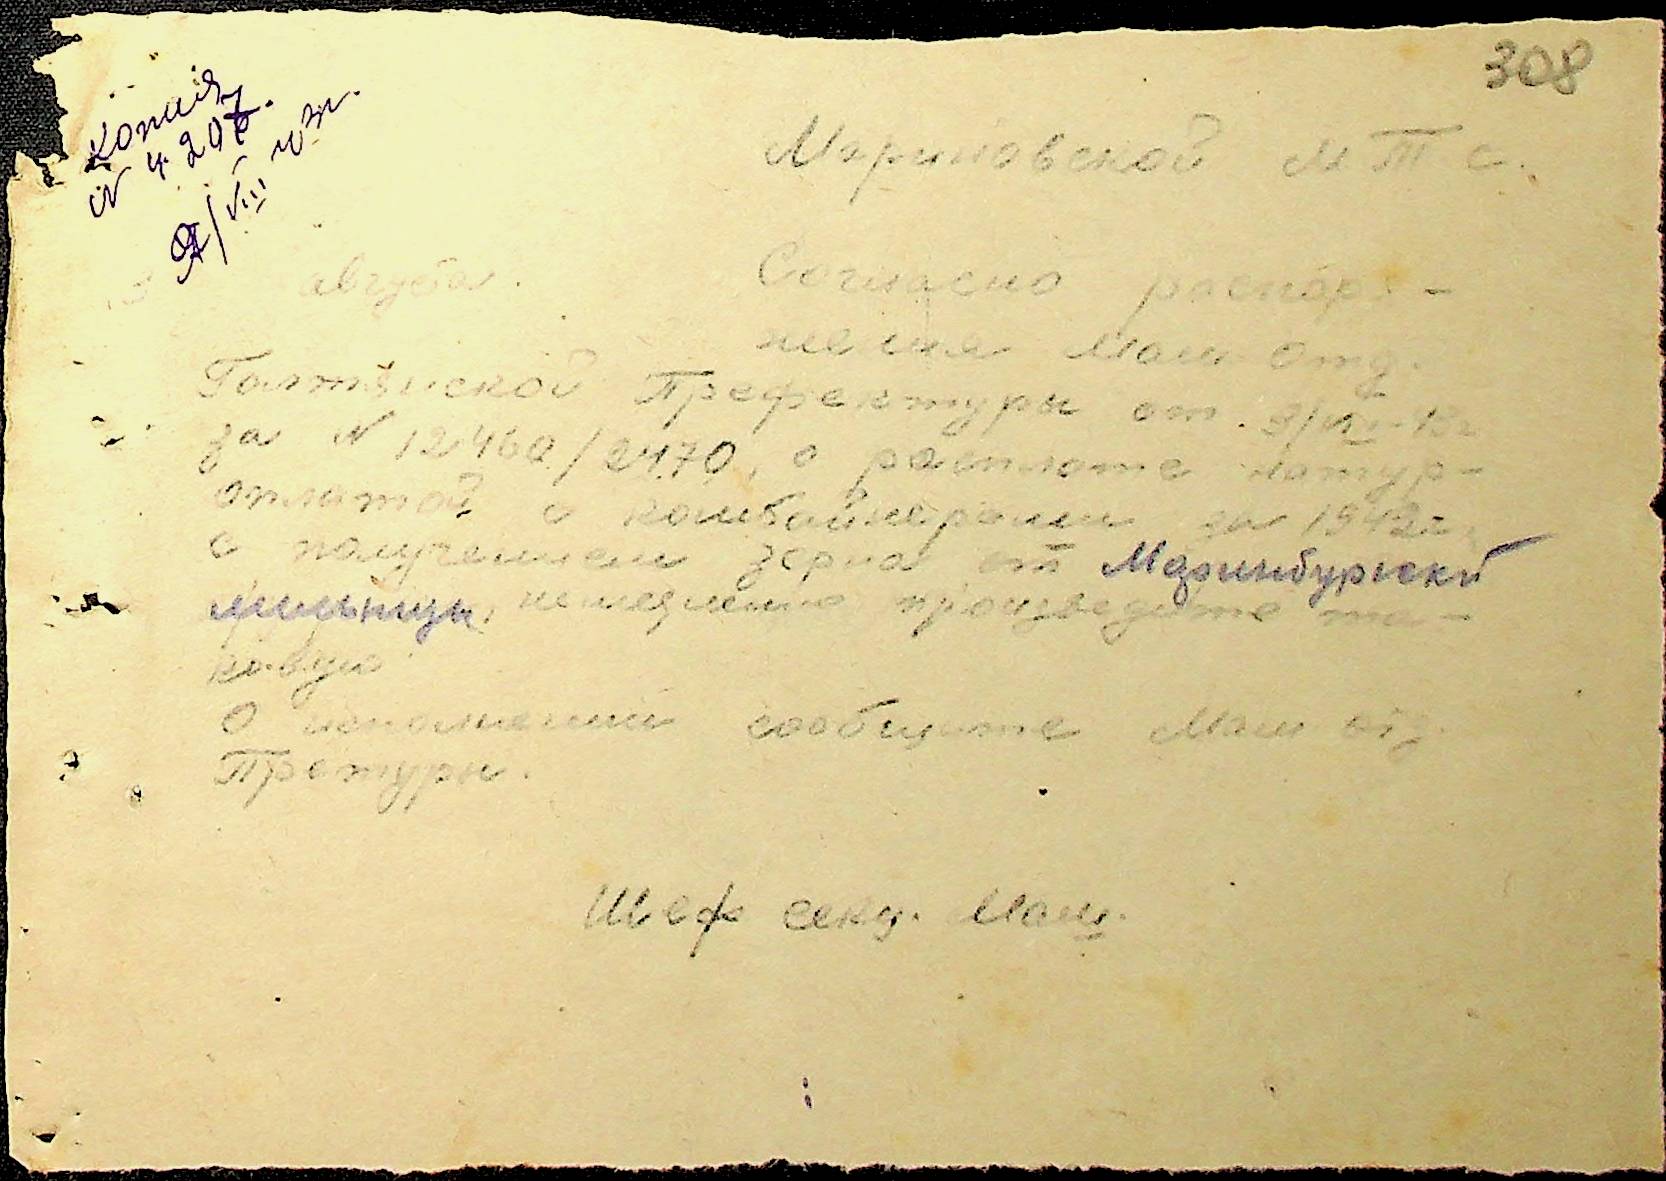 308
Копия
N 4.207.
9/VIII 43г.
Мариновской М.Т.С.
августа.
Согласно распоря-
жения Маш. Отд.
Голтянской Префектуры от 3/VIII-43г
за N 12460/2470, о расплате натур-
оплатой с комбайнерами за 1942г.
с получением зерна от Маринбургской
мельницы, немедленно произведите та-
ковую
О исполнении сообщите Маш отд.
Претуры.
Шеф секц. Маш.